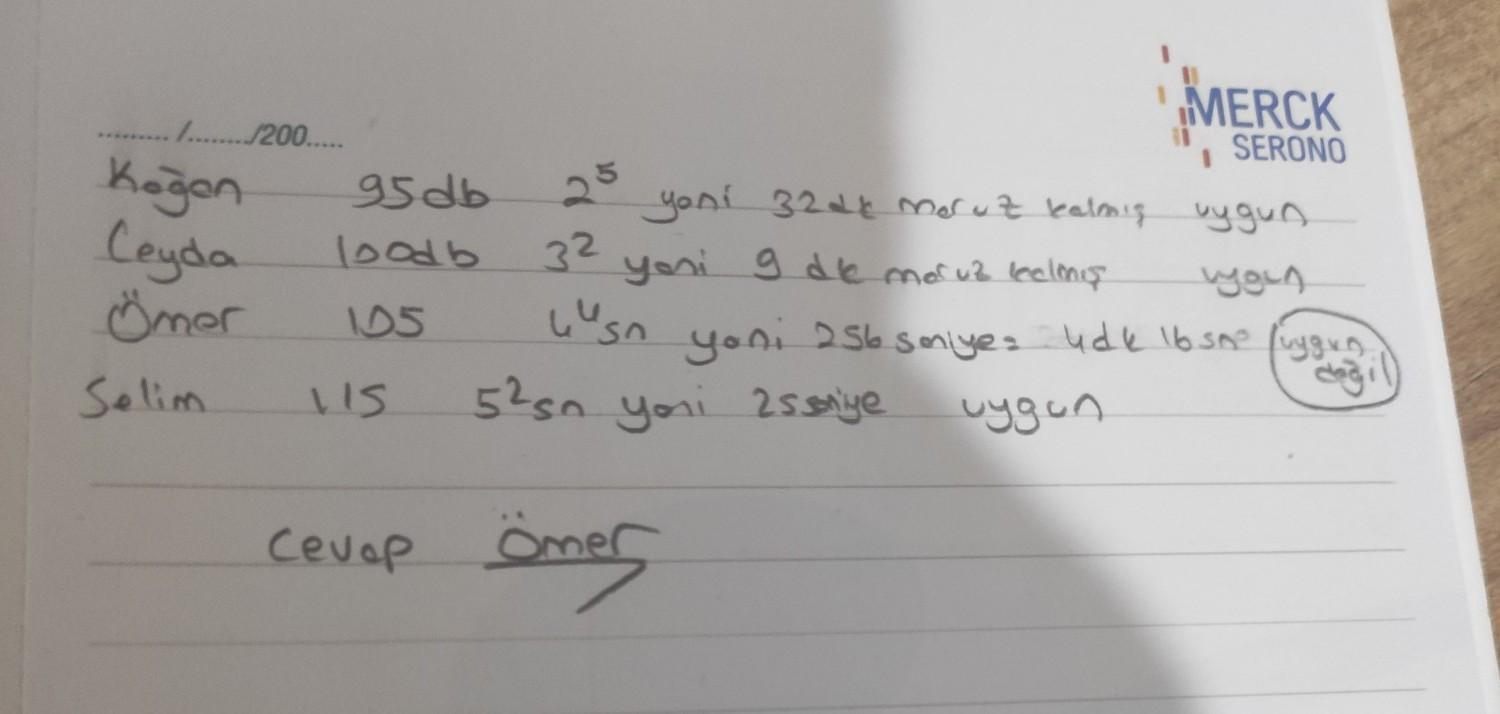 ........./......../200.....
MERCK
SERONO
Kağan 95db 2⁵ yani 32dk maruz kalmış uygun
Ceyda 100db 3² yani 9 dk maruz kalmış uygun
Ömer 105 4⁴sn yani 256 saniye= 4dk 16sn= uygun değil
Selim 115 5²sn yani 25saniye uygun
Cevap Ömer